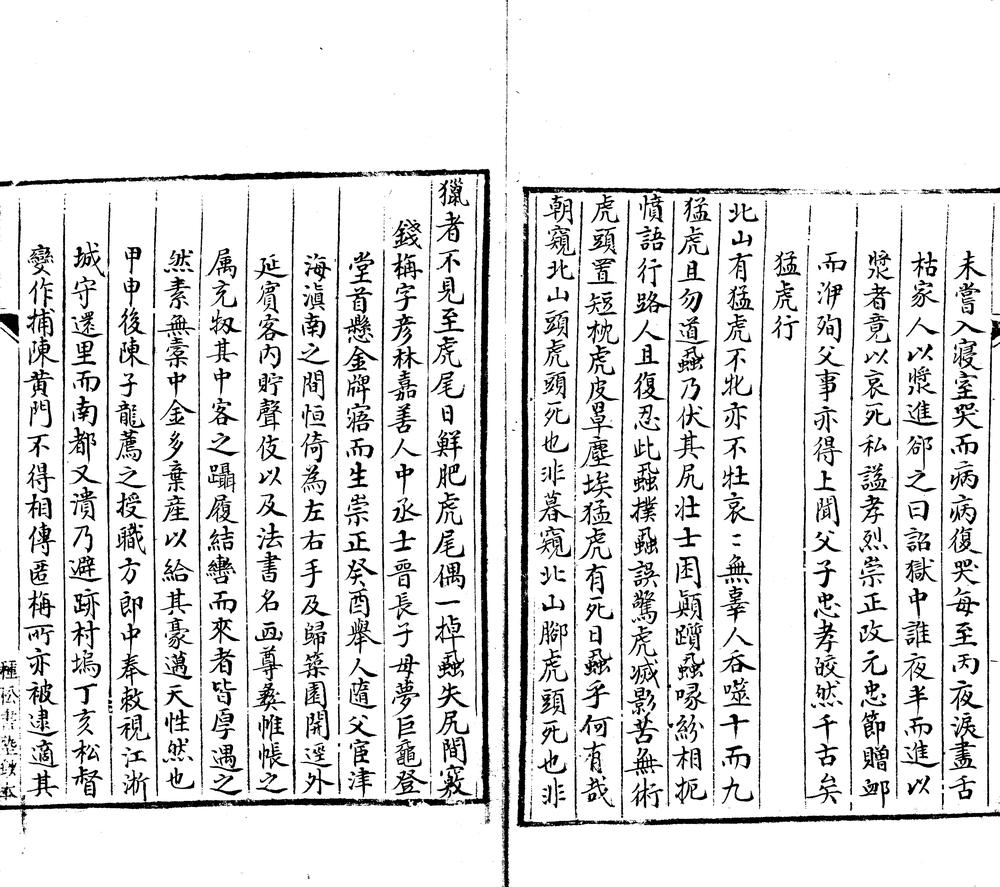 未嘗入寢室哭而病病復哭每至丙夜淚盡舌
枯家人以漿進郤之曰詔獄中誰夜半而進以
漿者竟以哀死私謚孝烈崇正改元忠節贈䘏
而洢殉父事亦得上聞父子忠孝皎然千古矣
猛虎行
北山有猛虎不牝亦不牡哀〻無辜人吞噬十而九
猛虎且勿道蝨乃伏其尻壯士困顛躓蝨喙紛相扼
憤語行路人且復忍此蝨撲蝨誤驚虎滅影苦無術
虎頭置短枕虎皮罩塵埃猛虎有死日蝨乎何有哉
朝窺北山頭虎頭死也非暮窺北山腳虎頭死也非
獵者不見至虎尾日鮮肥虎尾偶一掉蝨失尻間竅
錢栴字彥林嘉善人中丞士晉長子母夢巨龜登
堂首懸金牌寤而生崇正癸酉舉人隨父宦津
海滇南之間恒倚為左右手及歸築園開逕外
延賓客內貯聲伎以及法書名畫尊彝帷帳之
属充牣其中客之躡履結轡而來者皆厚遇之
然素無橐中金多棄産以給其豪邁天性然也
甲申後陳子龍薦之授職方郎中奉敕視江浙
城守還里而南都又潰乃避跡村塢丁亥松督
變作捕陳黄門不得相傳匿栴所亦被逮適其
種松書塾鈔本